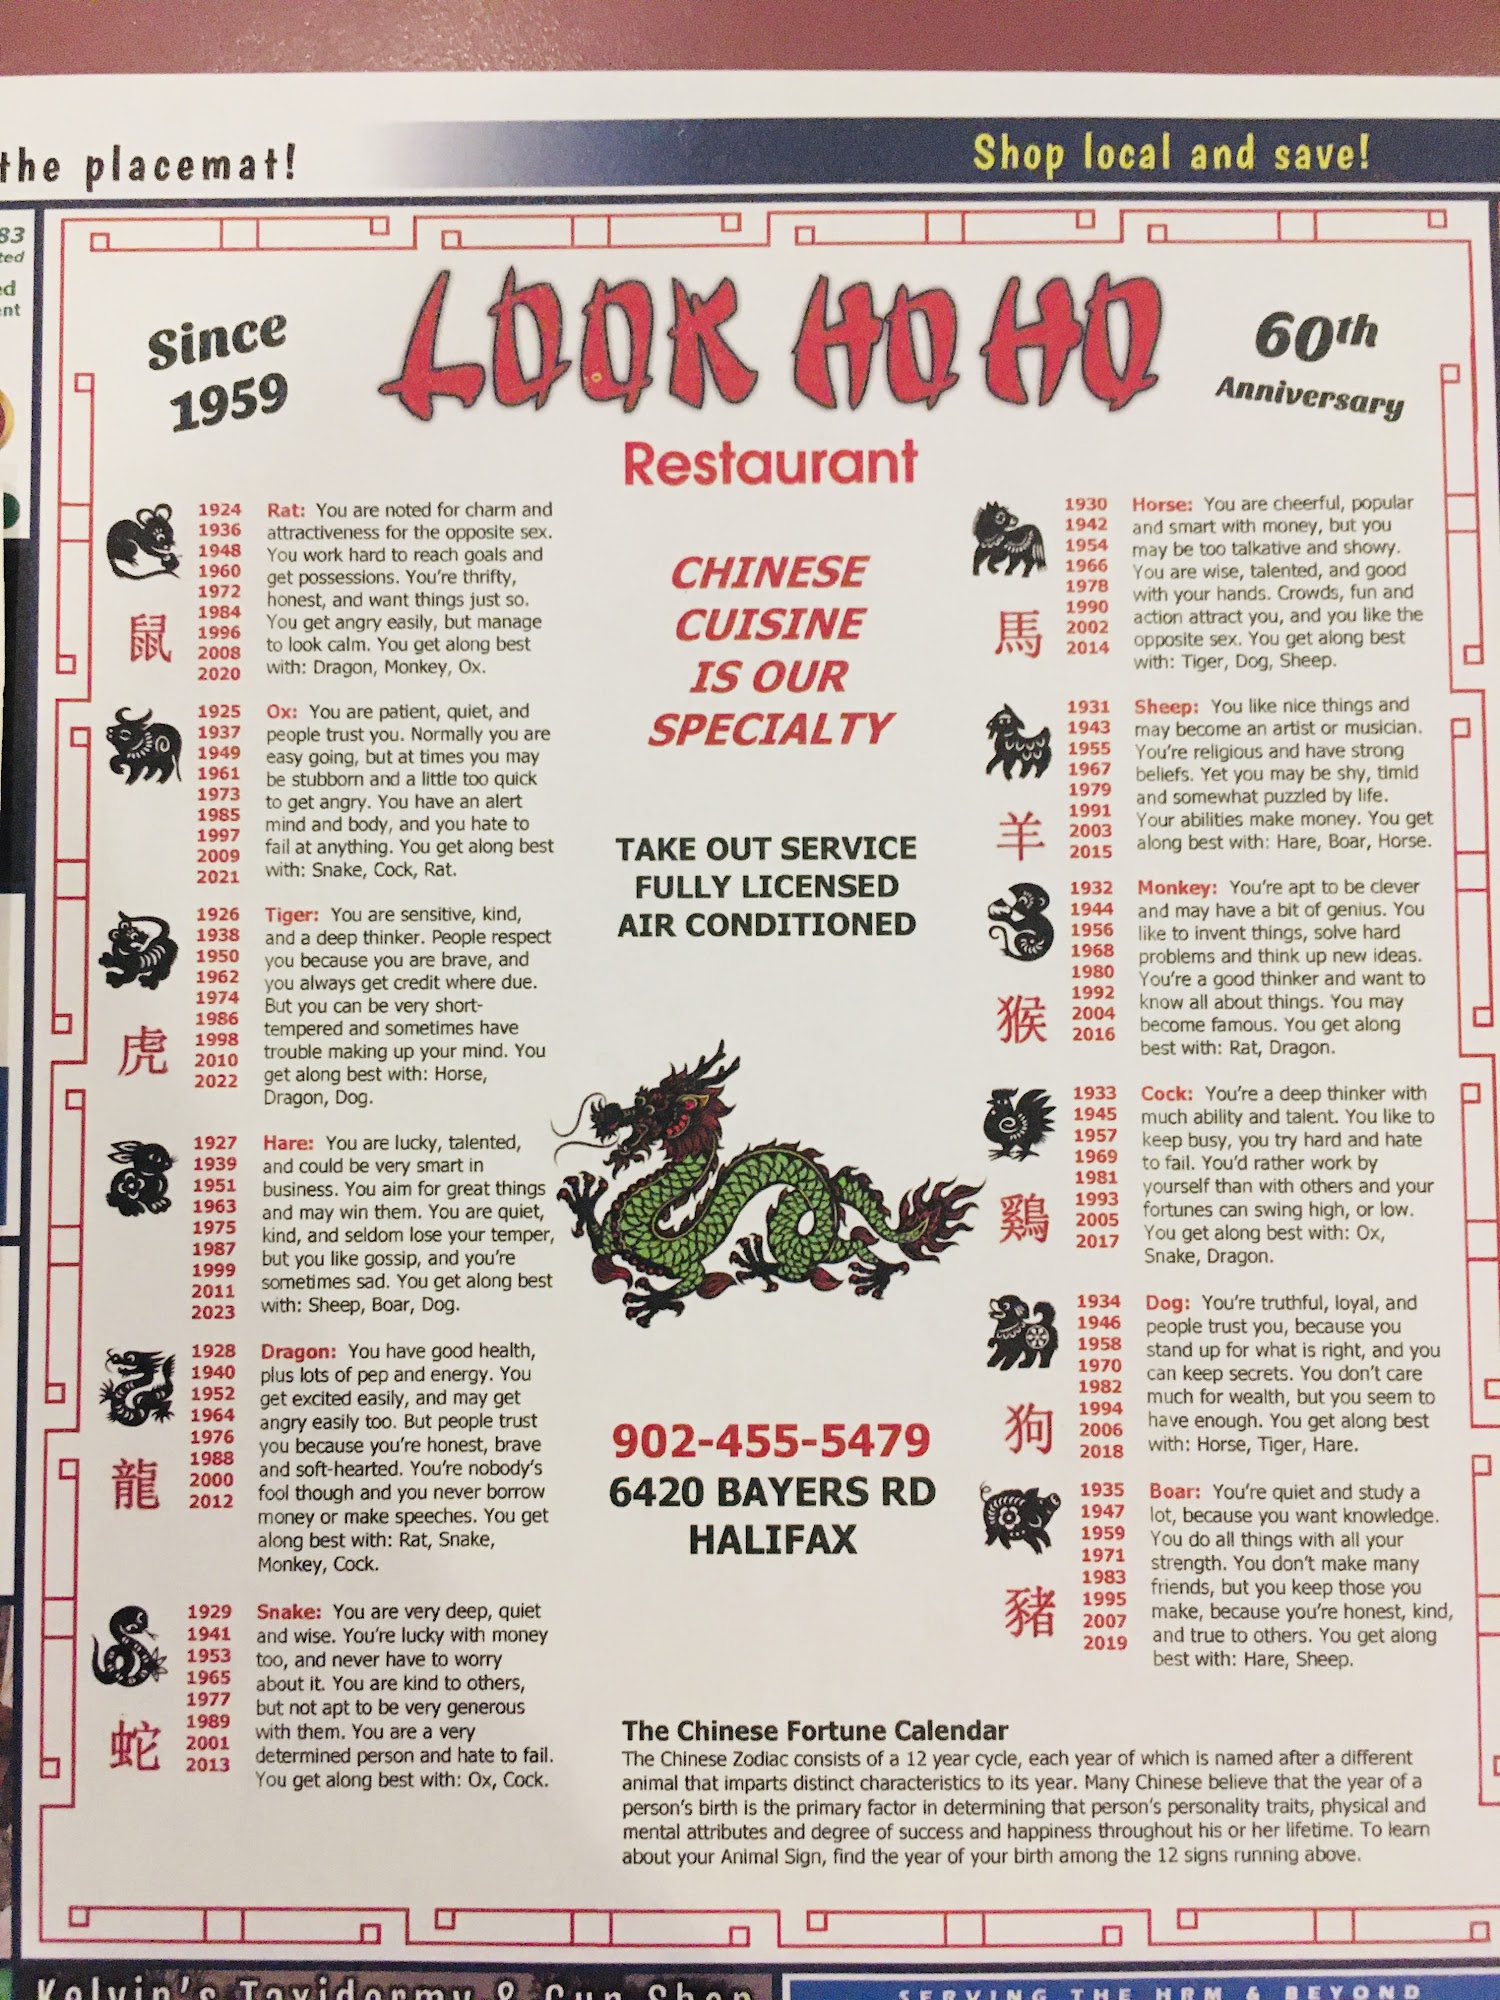 the placemat!
Shop local and save!
83
ted
ed
ent
Since
1959
LOOK HO HO
60th
Anniversary
Restaurant
1924
1936
1948
1960
1972
1984
1996
2008
2020
鼠
Rat: You are noted for charm and
attractiveness for the opposite sex.
You work hard to reach goals and
get possessions. You're thrifty,
honest, and want things just so.
You get angry easily, but manage
to look calm. You get along best
with: Dragon, Monkey, Ox.
1925
1937
1949
1961
1973
1985
1997
2009
2021
Ox: You are patient, quiet, and
people trust you. Normally you are
easy going, but at times you may
be stubborn and a little too quick
to get angry. You have an alert
mind and body, and you hate to
fail at anything. You get along best
with: Snake, Cock, Rat.
1926
1938
1950
1962
1974
1986
1998
2010
2022
虎
Tiger: You are sensitive, kind,
and a deep thinker. People respect
you because you are brave, and
you always get credit where due.
But you can be very short-
tempered and sometimes have
trouble making up your mind. You
get along best with: Horse,
Dragon, Dog.
1927
1939
1951
1963
1975
1987
1999
2011
2023
Hare: You are lucky, talented,
and could be very smart in
business. You aim for great things
and may win them. You are quiet,
kind, and seldom lose your temper,
but you like gossip, and you're
sometimes sad. You get along best
with: Sheep, Boar, Dog.
1928
1940
1952
1964
1976
1988
2000
2012
龍
Dragon: You have good health,
plus lots of pep and energy. You
get excited easily, and may get
angry easily too. But people trust
you because you're honest, brave
and soft-hearted. You're nobody's
fool though and you never borrow
money or make speeches. You get
along best with: Rat, Snake,
Monkey, Cock.
1929
1941
1953
1965
1977
1989
2001
2013
蛇
Snake: You are very deep, quiet
and wise. You're lucky with money
too, and never have to worry
about it. You are kind to others,
but not apt to be very generous
with them. You are a very
determined person and hate to fail.
You get along best with: Ox, Cock.
CHINESE
CUISINE
IS OUR
SPECIALTY
TAKE OUT SERVICE
FULLY LICENSED
AIR CONDITIONED
902-455-5479
6420 BAYERS RD
HALIFAX
1930
1942
1954
1966
1978
1990
2002
2014
馬
Horse: You are cheerful, popular
and smart with money, but you
may be too talkative and showy.
You are wise, talented, and good
with your hands. Crowds, fun and
action attract you, and you like the
opposite sex. You get along best
with: Tiger, Dog, Sheep.
1931
1943
1955
1967
1979
1991
2003
2015
羊
Sheep: You like nice things and
may become an artist or musician.
You're religious and have strong
beliefs. Yet you may be shy, timid
and somewhat puzzled by life.
Your abilities make money. You get
along best with: Hare, Boar, Horse.
1932
1944
1956
1968
1980
1992
2004
2016
猴
Monkey: You're apt to be clever
and may have a bit of genius. You
like to invent things, solve hard
problems and think up new ideas.
You're a good thinker and want to
know all about things. You may
become famous. You get along
best with: Rat, Dragon.
1933
1945
1957
1969
1981
1993
2005
2017
鷄
Cock: You're a deep thinker with
much ability and talent. You like to
keep busy, you try hard and hate
to fail. You'd rather work by
yourself than with others and your
fortunes can swing high, or low.
You get along best with: Ox,
Snake, Dragon.
1934
1946
1958
1970
1982
1994
2006
2018
狗
Dog: You're truthful, loyal, and
people trust you, because you
stand up for what is right, and you
can keep secrets. You don't care
much for wealth, but you seem to
have enough. You get along best
with: Horse, Tiger, Hare.
1935
1947
1959
1971
1983
1995
2007
2019
豬
Boar: You're quiet and study a
lot, because you want knowledge.
You do all things with all your
strength. You don't make many
friends, but you keep those you
make, because you're honest, kind,
and true to others. You get along
best with: Hare, Sheep.
The Chinese Fortune Calendar
The Chinese Zodiac consists of a 12 year cycle, each year of which is named after a different
animal that imparts distinct characteristics to its year. Many Chinese believe that the year of a
person's birth is the primary factor in determining that person's personality traits, physical and
mental attributes and degree of success and happiness throughout his or her lifetime. To learn
about your Animal Sign, find the year of your birth among the 12 signs running above.
Kelvin's Taxidermy & Gun Shop
SERVING THE HRM & BEYOND